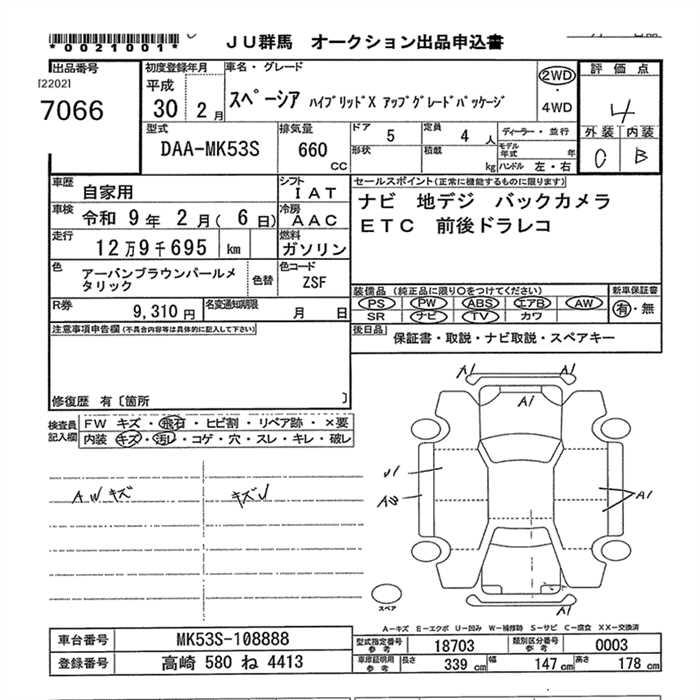 *0021001*
JU群馬 オークション出品申込書
出品番号
[2202]
7066
初度登録年月
平成
30 2月
車名・グレード
スペーシア ハイブリッドX アップグレードパッケージ
2WD
・
4WD
評価点
4
外装 内装
C B
型式
DAA-MK53S
排気量
660
CC
ドア 5
定員 4 人
形状
積載 kg
ディーラー・並行
モデル年式 年
ハンドル 左・右
車歴
自家用
シフト
IAT
車検
令和 9年 2月( 6日)
冷房
AAC
走行
12万9千695 km
燃料
ガソリン
色
アーバンブラウンパールメタリック
色替
色コード
ZSF
R券
9,310円
名変通知期限
月 日
セールスポイント(正常に機能するものに限ります)
ナビ 地デジ バックカメラ
ETC 前後ドラレコ
装備品 (純正品に限り○をつけてください)
PS PW ABS エアB AW
SR ナビ TV カワ
新車保証書
有・無
後日品
保証書・取説・ナビ取説・スペアキー
注意事項申告欄(不具合内容等は具体的に記入して下さい)
修復歴 有〔箇所 〕
検査員記入欄
FW キズ・飛石・ヒビ割・リペア跡・×要
内装 キズ・汚レ・コゲ・穴・スレ・キレ・破レ
AWキズ
キズU
A1
A1
A1
U1
AW
A1
A1
スペア
A-キズ E-エクボ U-凹み W-補修跡 S-サビ C-腐食 XX-交換済
車台番号
MK53S-108888
登録番号
高崎 580 ね 4413
型式指定番号 参考
18703
類別区分番号 参考
0003
車庫証明用 参考
長さ 339 cm
幅 147 cm
高さ 178 cm